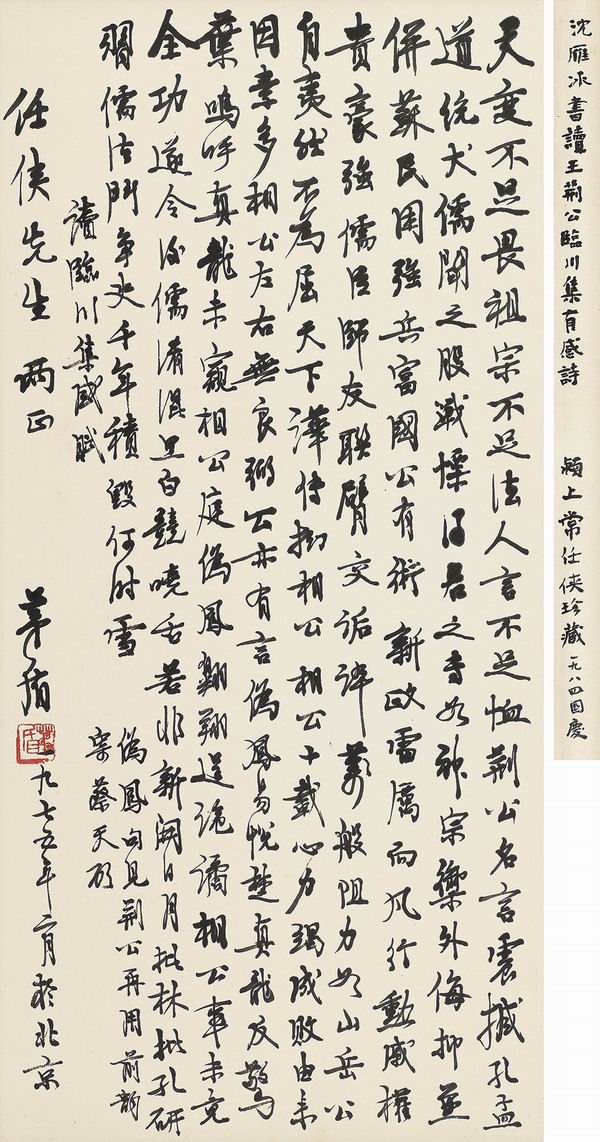 沈雁冰書讀王荊公臨川集有感詩 潁上常任俠珍藏 一九八四国慶
天变不足畏祖宗不足法人言不足恤荆公名言震撼孔孟
道统犬儒闻之股战慄得君之专如神宗御外侮抑兼
併蘇民困強兵富國公有術新政雷厲而风行動威權
貴豪強儒臣師友聯臂交诟谇萬般阻力如山岳公
自夷然不為屈天下譁传拗相公相公十載心力竭成败由来
因素多相公左右無良弼公亦有言偽鳳易悅楚真龍反驚
葉嗚呼真龍未窺相公庭偽鳳翩翔逞诡譎相公事未竟
全功遂令後儒淆混黑白競嘵舌若非新開日月批林批孔研
習儒法鬥争史千年積毀何时雪
偽鳳句见荆公再用前韵
寄蔡天启
讀臨川集感賦
任俠先生 两正
茅盾 一九七五年二月於北京